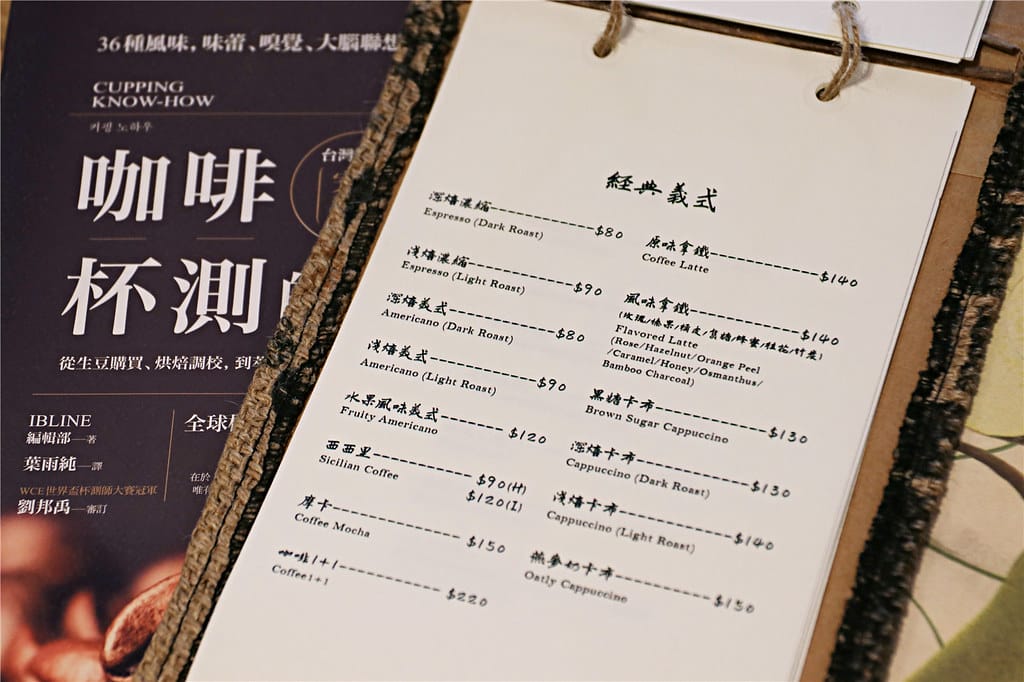 36種風味，味蕾、嗅覺、大腦聯想
CUPPING
KNOW-HOW
커핑 노하우
咖啡
台灣
杯測
從生豆購買、烘焙調校，到
IBLINE
編輯部—著
葉雨純—譯
WCE世界盃杯測師大賽冠軍
劉邦禹—審訂
全球
在於
唯有
經典義式
深焙濃縮----------$80
Espresso (Dark Roast)
淺焙濃縮----------$90
Espresso (Light Roast)
深焙義式----------$80
Americano (Dark Roast)
淺焙義式----------$90
Americano (Light Roast)
水果風味義式------$120
Fruity Americano
西西里------------$90(H)
Sicilian Coffee
$120(I)
摩卡--------------$150
Coffee Mocha
咖啡1+1-----------$220
Coffee1+1
原味拿鐵----------$140
Coffee Latte
風味拿鐵----------$140
(玫瑰/榛果/橘皮/焦糖/蜂蜜/桂花/竹炭)
Flavored Latte
(Rose/Hazelnut/Orange Peel
/Caramel/Honey/Osmanthus/
Bamboo Charcoal)
黑糖卡布----------$130
Brown Sugar Cappuccino
深焙卡布----------$130
Cappuccino (Dark Roast)
淺焙卡布----------$140
Cappuccino (Light Roast)
燕麥奶卡布--------$150
Oatly Cappuccino